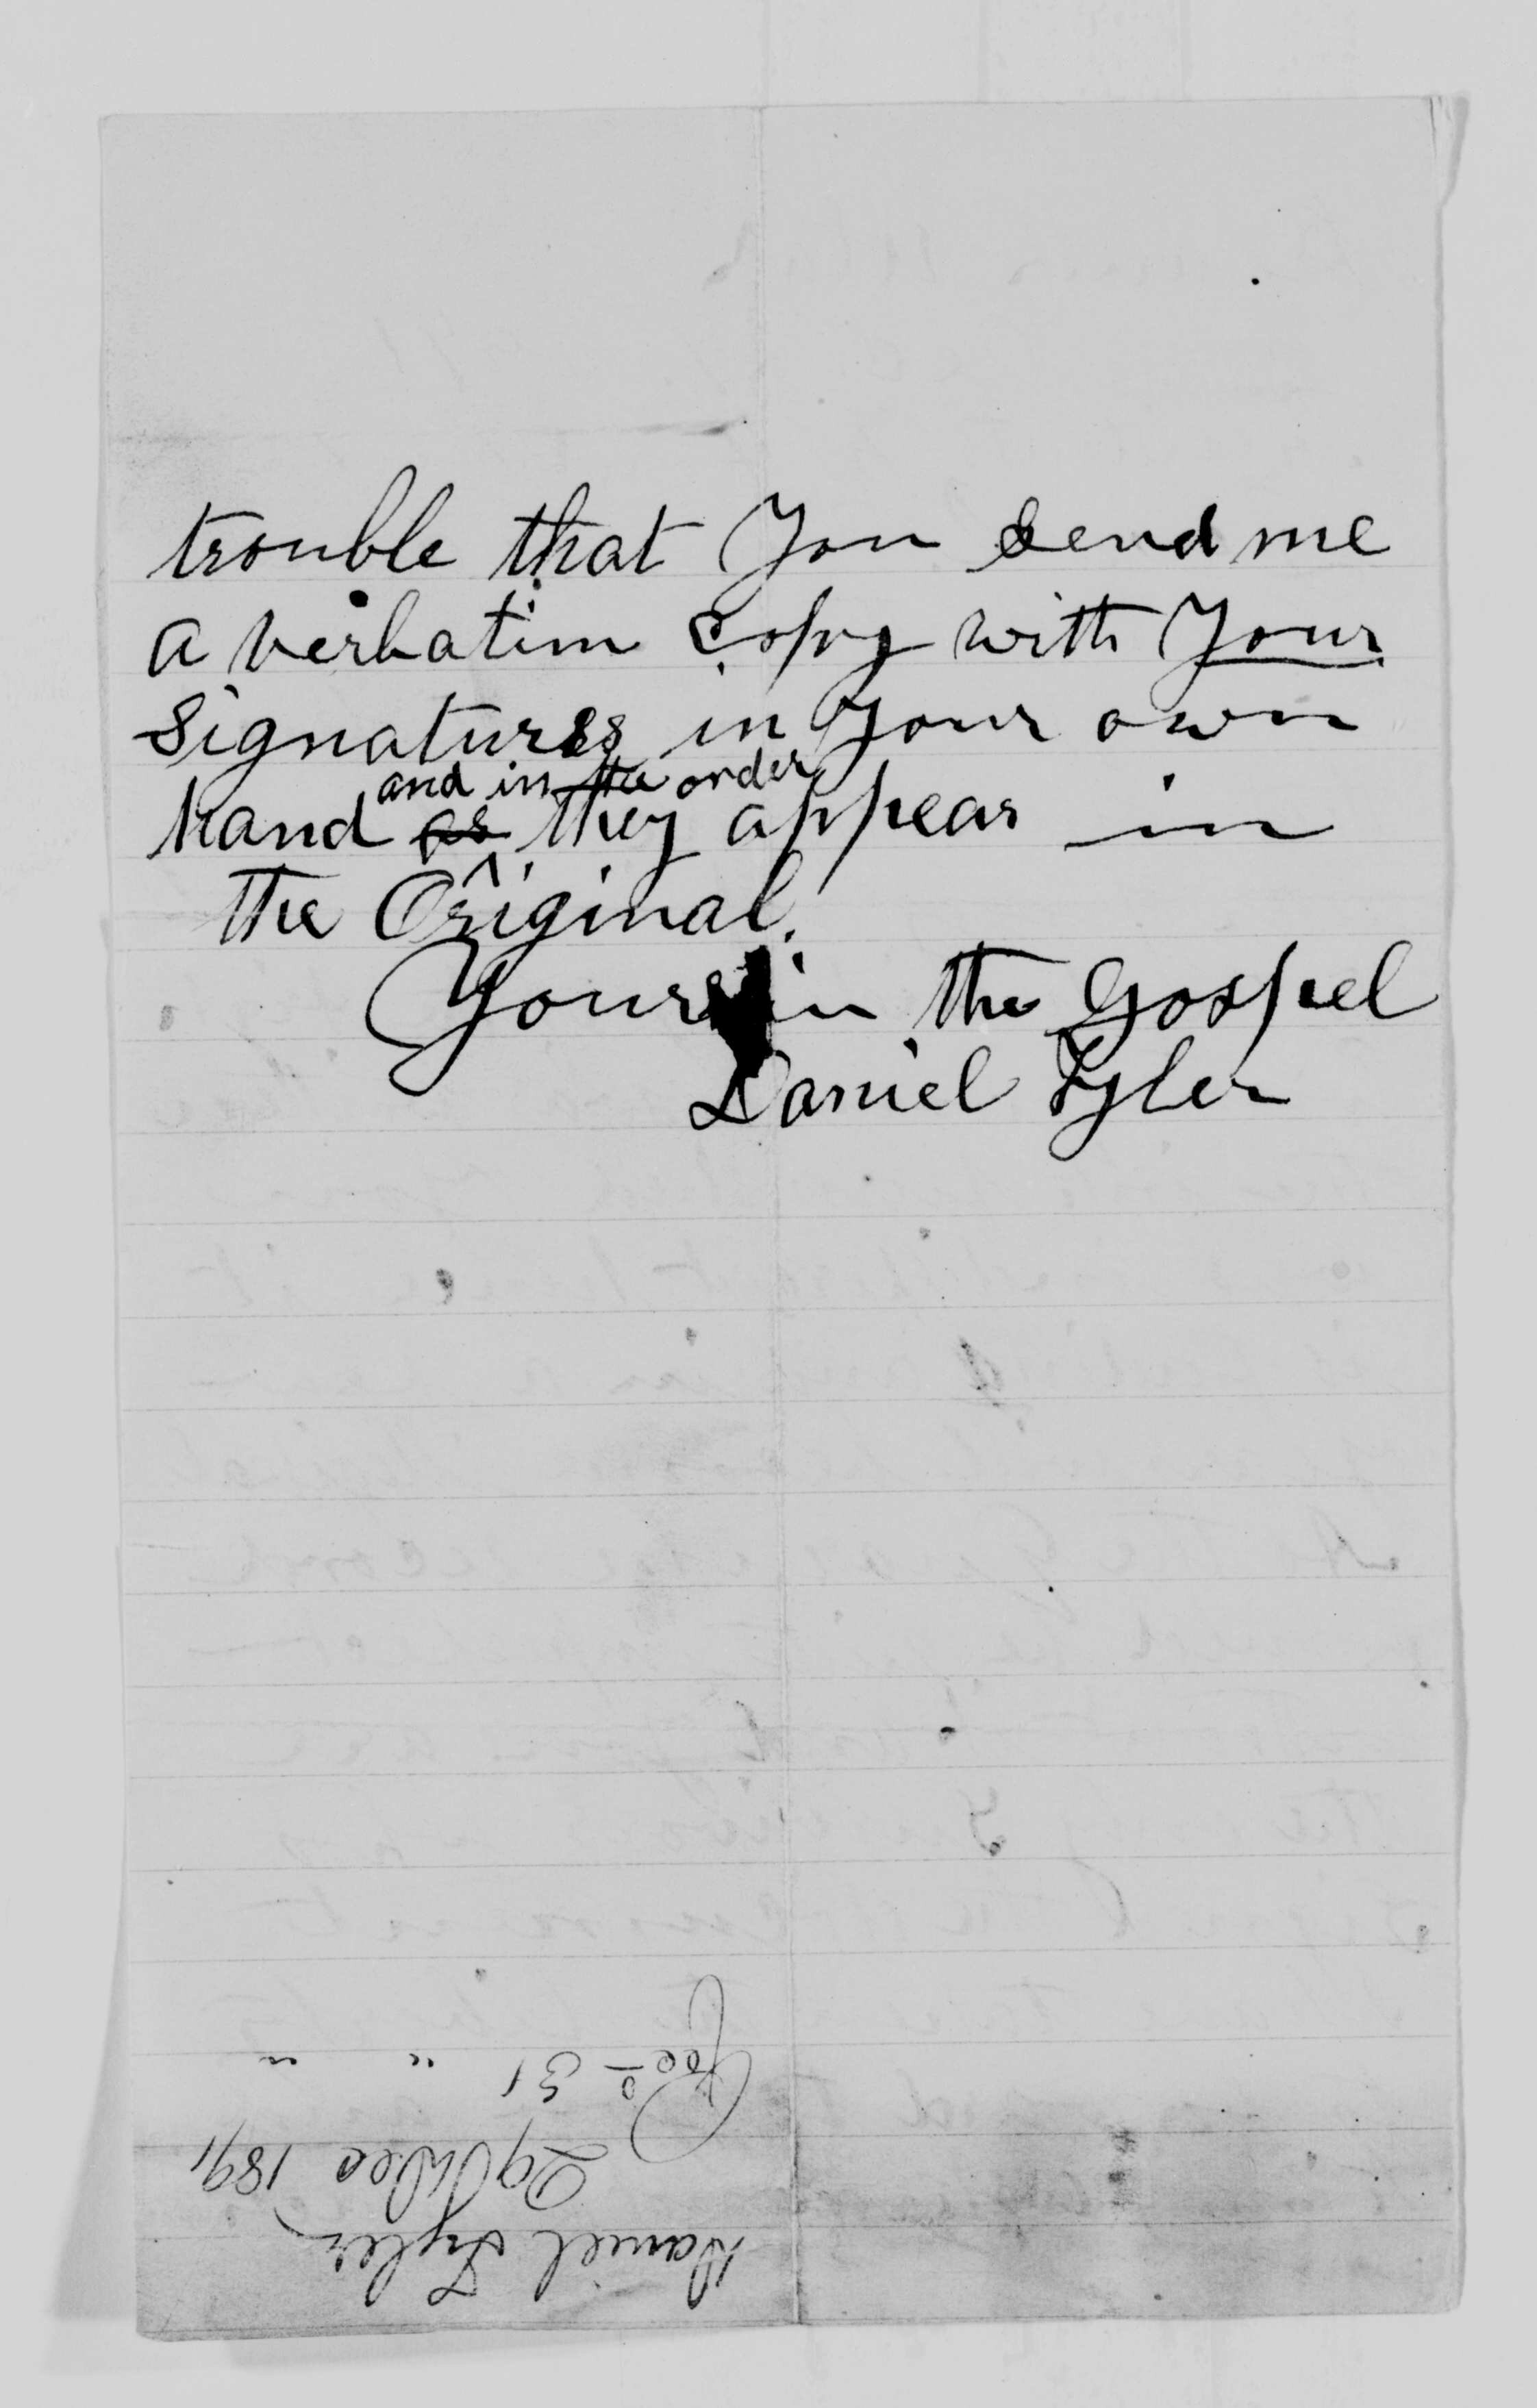 trouble that You send me
a verbatim copy with Your
signatures in Your own
hand as and in the order they appear in
the Original.
Yours in the Gospel
Daniel Tyler
Daniel Tyler
29 Dec 1891
Recd 31 " "